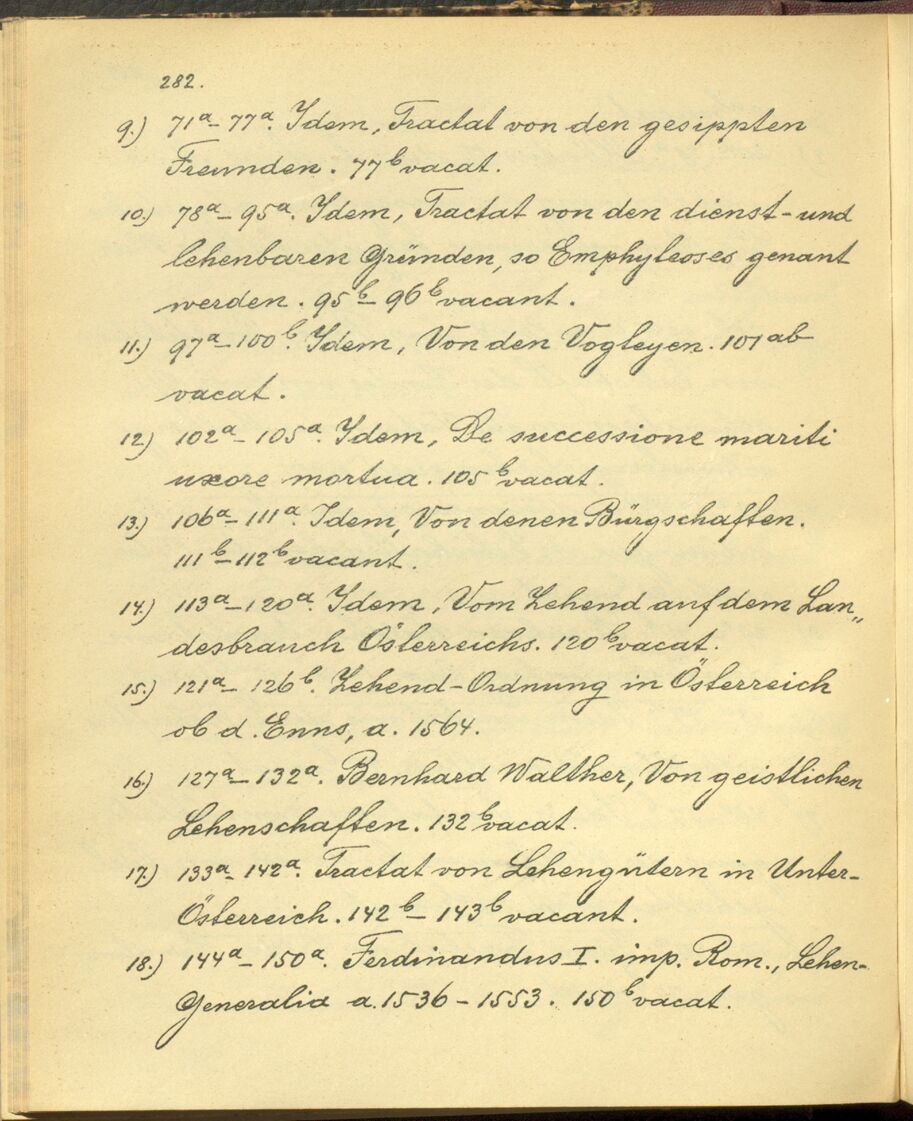 282.
9.) 71ᵃ–77ᵃ. Idem, Tractat von den gesippten
Freunden. 77ᵇ vacat.
10.) 78ᵃ–95ᵃ. Idem, Tractat von den dienst-und
lehenbaren Gründen, so Emphyleoses genant
werden. 95ᵇ–96ᵇ vacant.
11.) 97ᵃ–100ᵇ. Idem, Von den Vogleyen. 101ᵃᵇ
vacat.
12.) 102ᵃ–105ᵃ. Idem, De successione mariti
uxore mortua. 105ᵇ vacat.
13.) 106ᵃ–111ᵃ. Idem, Von denen Bürgschaften.
111ᵇ–112ᵇ vacant.
14.) 113ᵃ–120ᵃ. Idem, Vom Zehend auf dem Lan„
desbrauch Österreichs. 120ᵇ vacat.
15.) 121ᵃ–126ᵇ. Zehend-Ordnung in Österreich
ob d. Enns, a. 1564.
16.) 127ᵃ–132ᵃ. Bernhard Walther, Von geistlichen
Lehenschaften. 132ᵇ vacat.
17.) 133ᵃ–142ᵃ. Tractat von Lehengütern in Unter-
Österreich. 142ᵇ–143ᵇ vacant.
18.) 144ᵃ–150ᵃ. Ferdinandus I. imp. Rom., Lehen-
Generalia a. 1536–1553. 150ᵇ vacat.